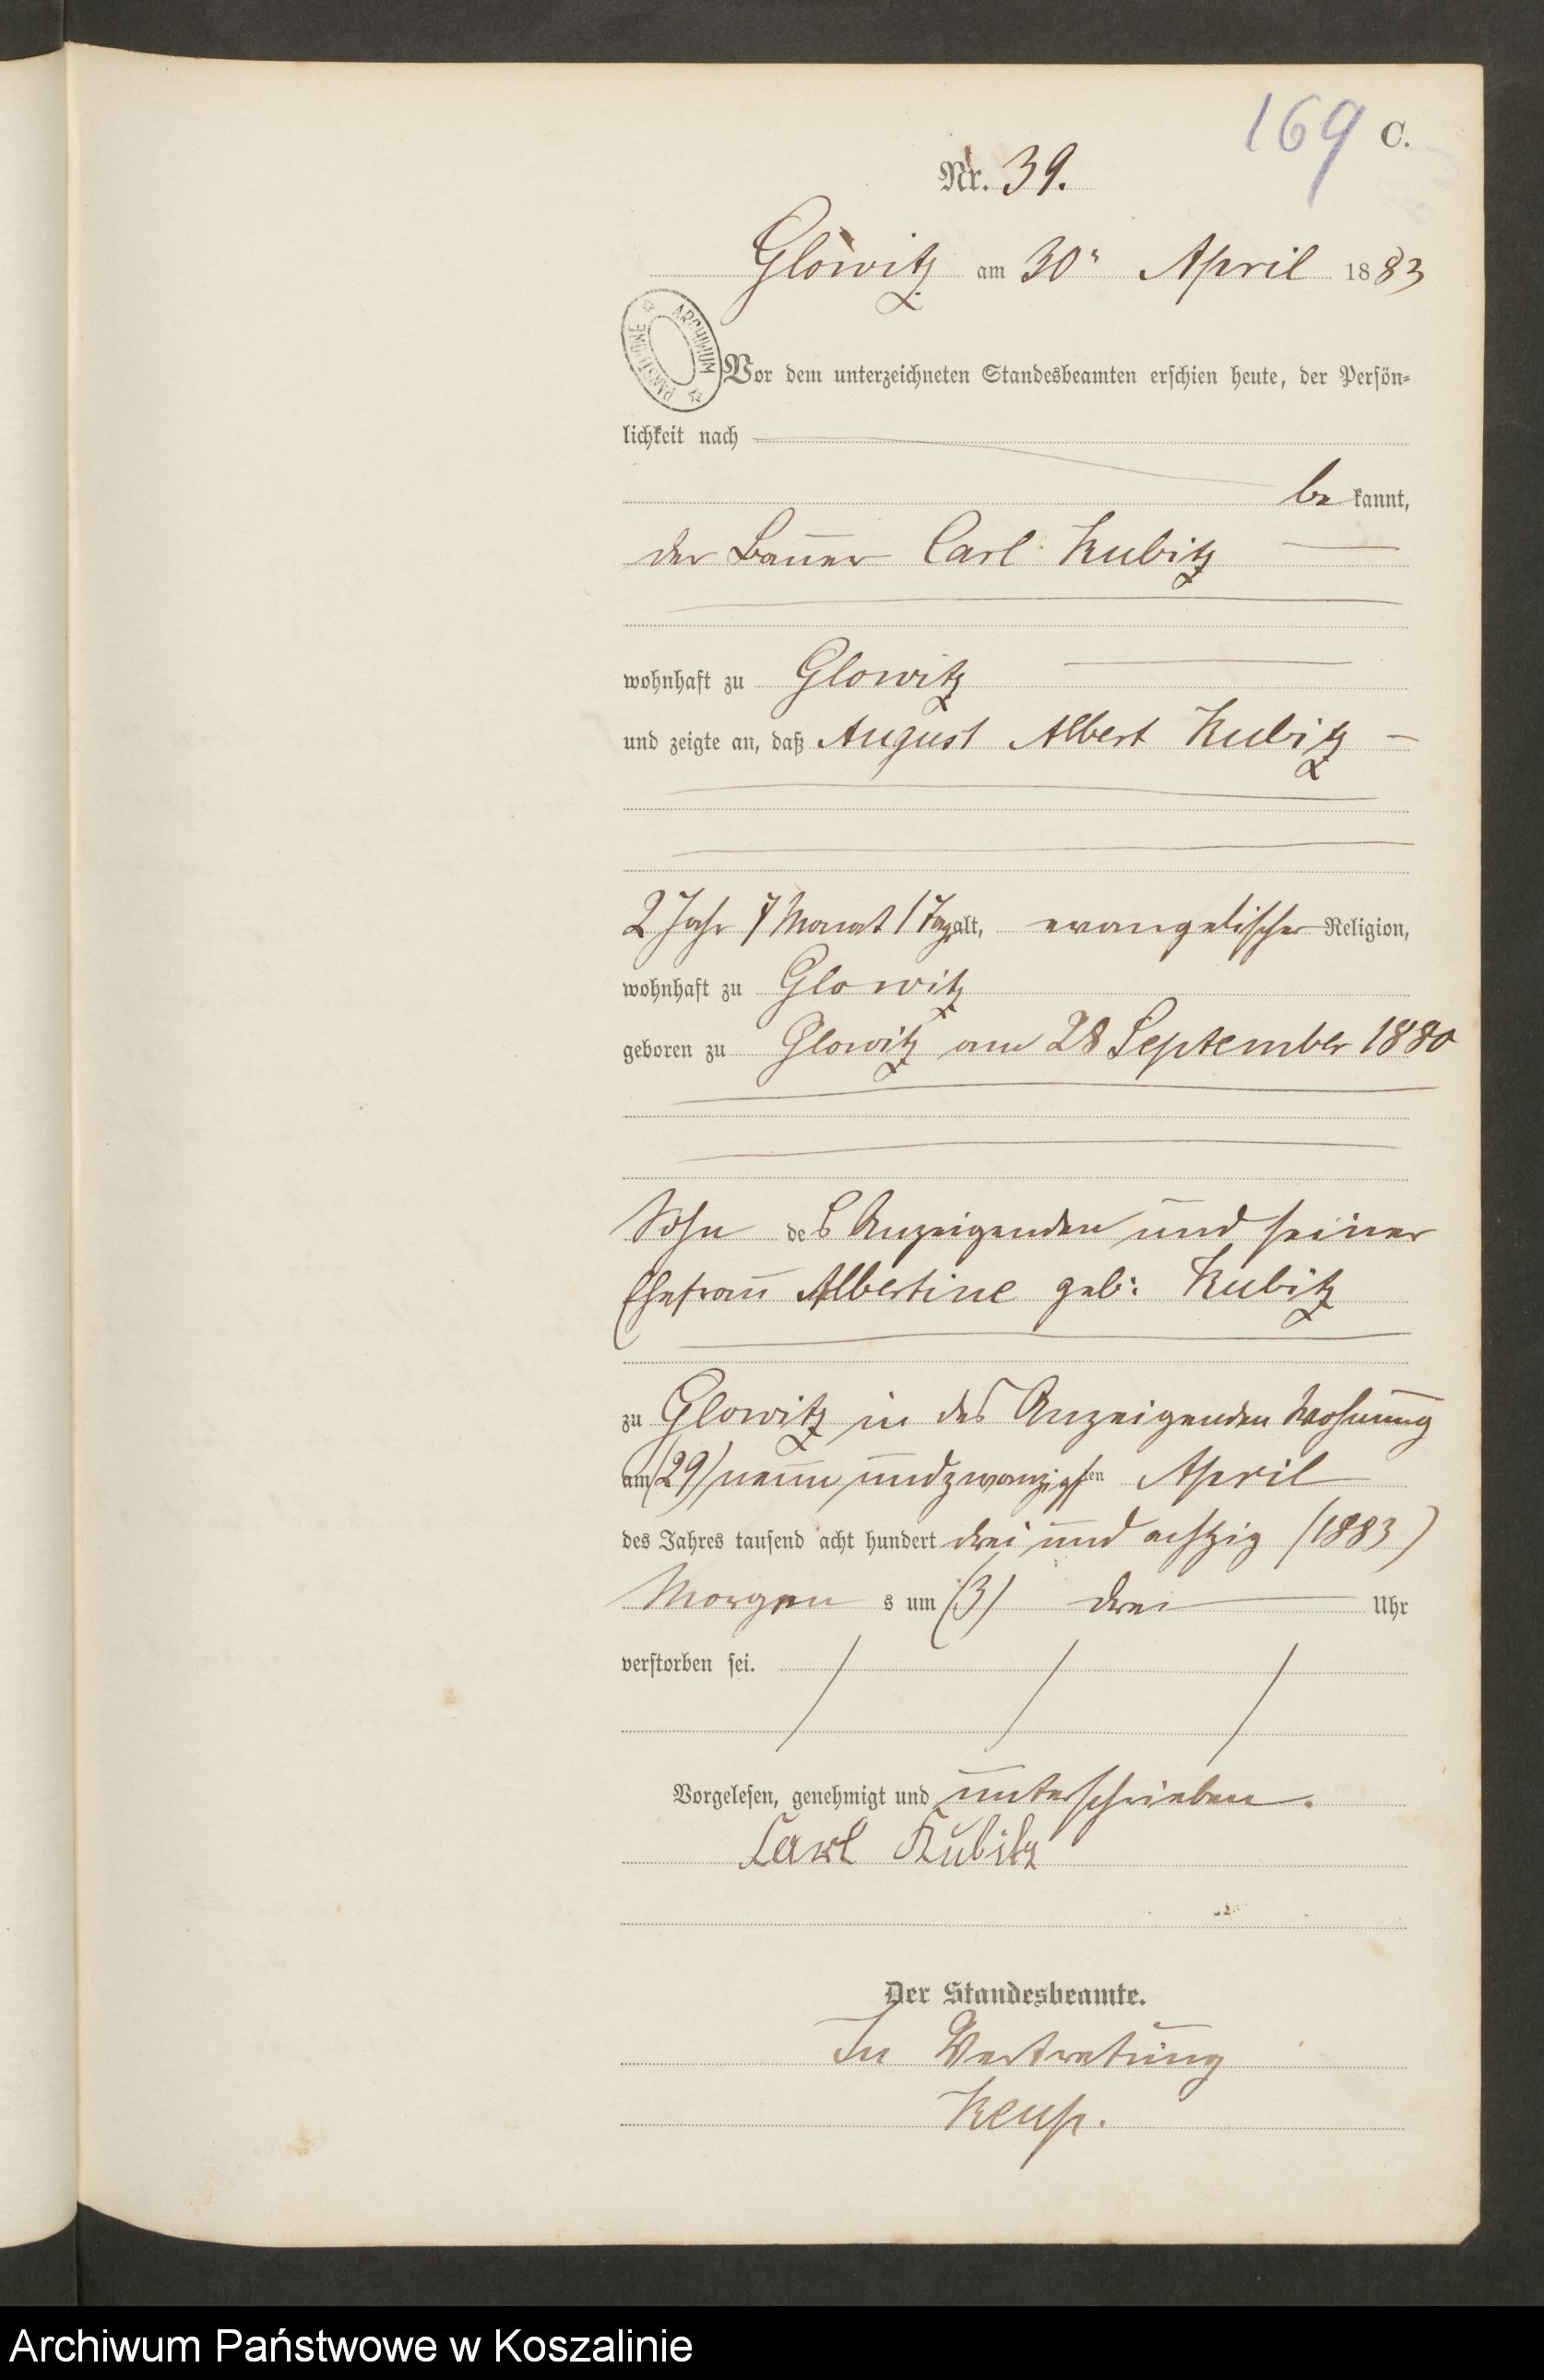 169 C.
Nr. 39.
Glowitz am 30ᵗ April 1883
ARCHIWUM PAŃSTWOWE
Vor dem unterzeichneten Standesbeamten erschien heute, der Persön-
lichkeit nach
be kannt,
der Bauer Carl Kubitz
wohnhaft zu Glowitz
und zeigte an, daß August Albert Kubitz
2 Jahr 7 Monat 1 Tag alt, evangelischer Religion,
wohnhaft zu Glowitz
geboren zu Glowitz am 28 September 1880
Sohn des Anzeigenden und seiner
Ehefrau Albertine geb: Kubitz
zu Glowitz in des Anzeigenden Wohnung
am (29) neun und zwanzigsten April
des Jahres tausend acht hundert drei und achtzig (1883)
Morgen s um (3) drei Uhr
verstorben sei.
Vorgelesen, genehmigt und unterschrieben.
Carl Kubitz
Der Standesbeamte.
In Vertretung
Archiwum Państwowe w Koszalinie